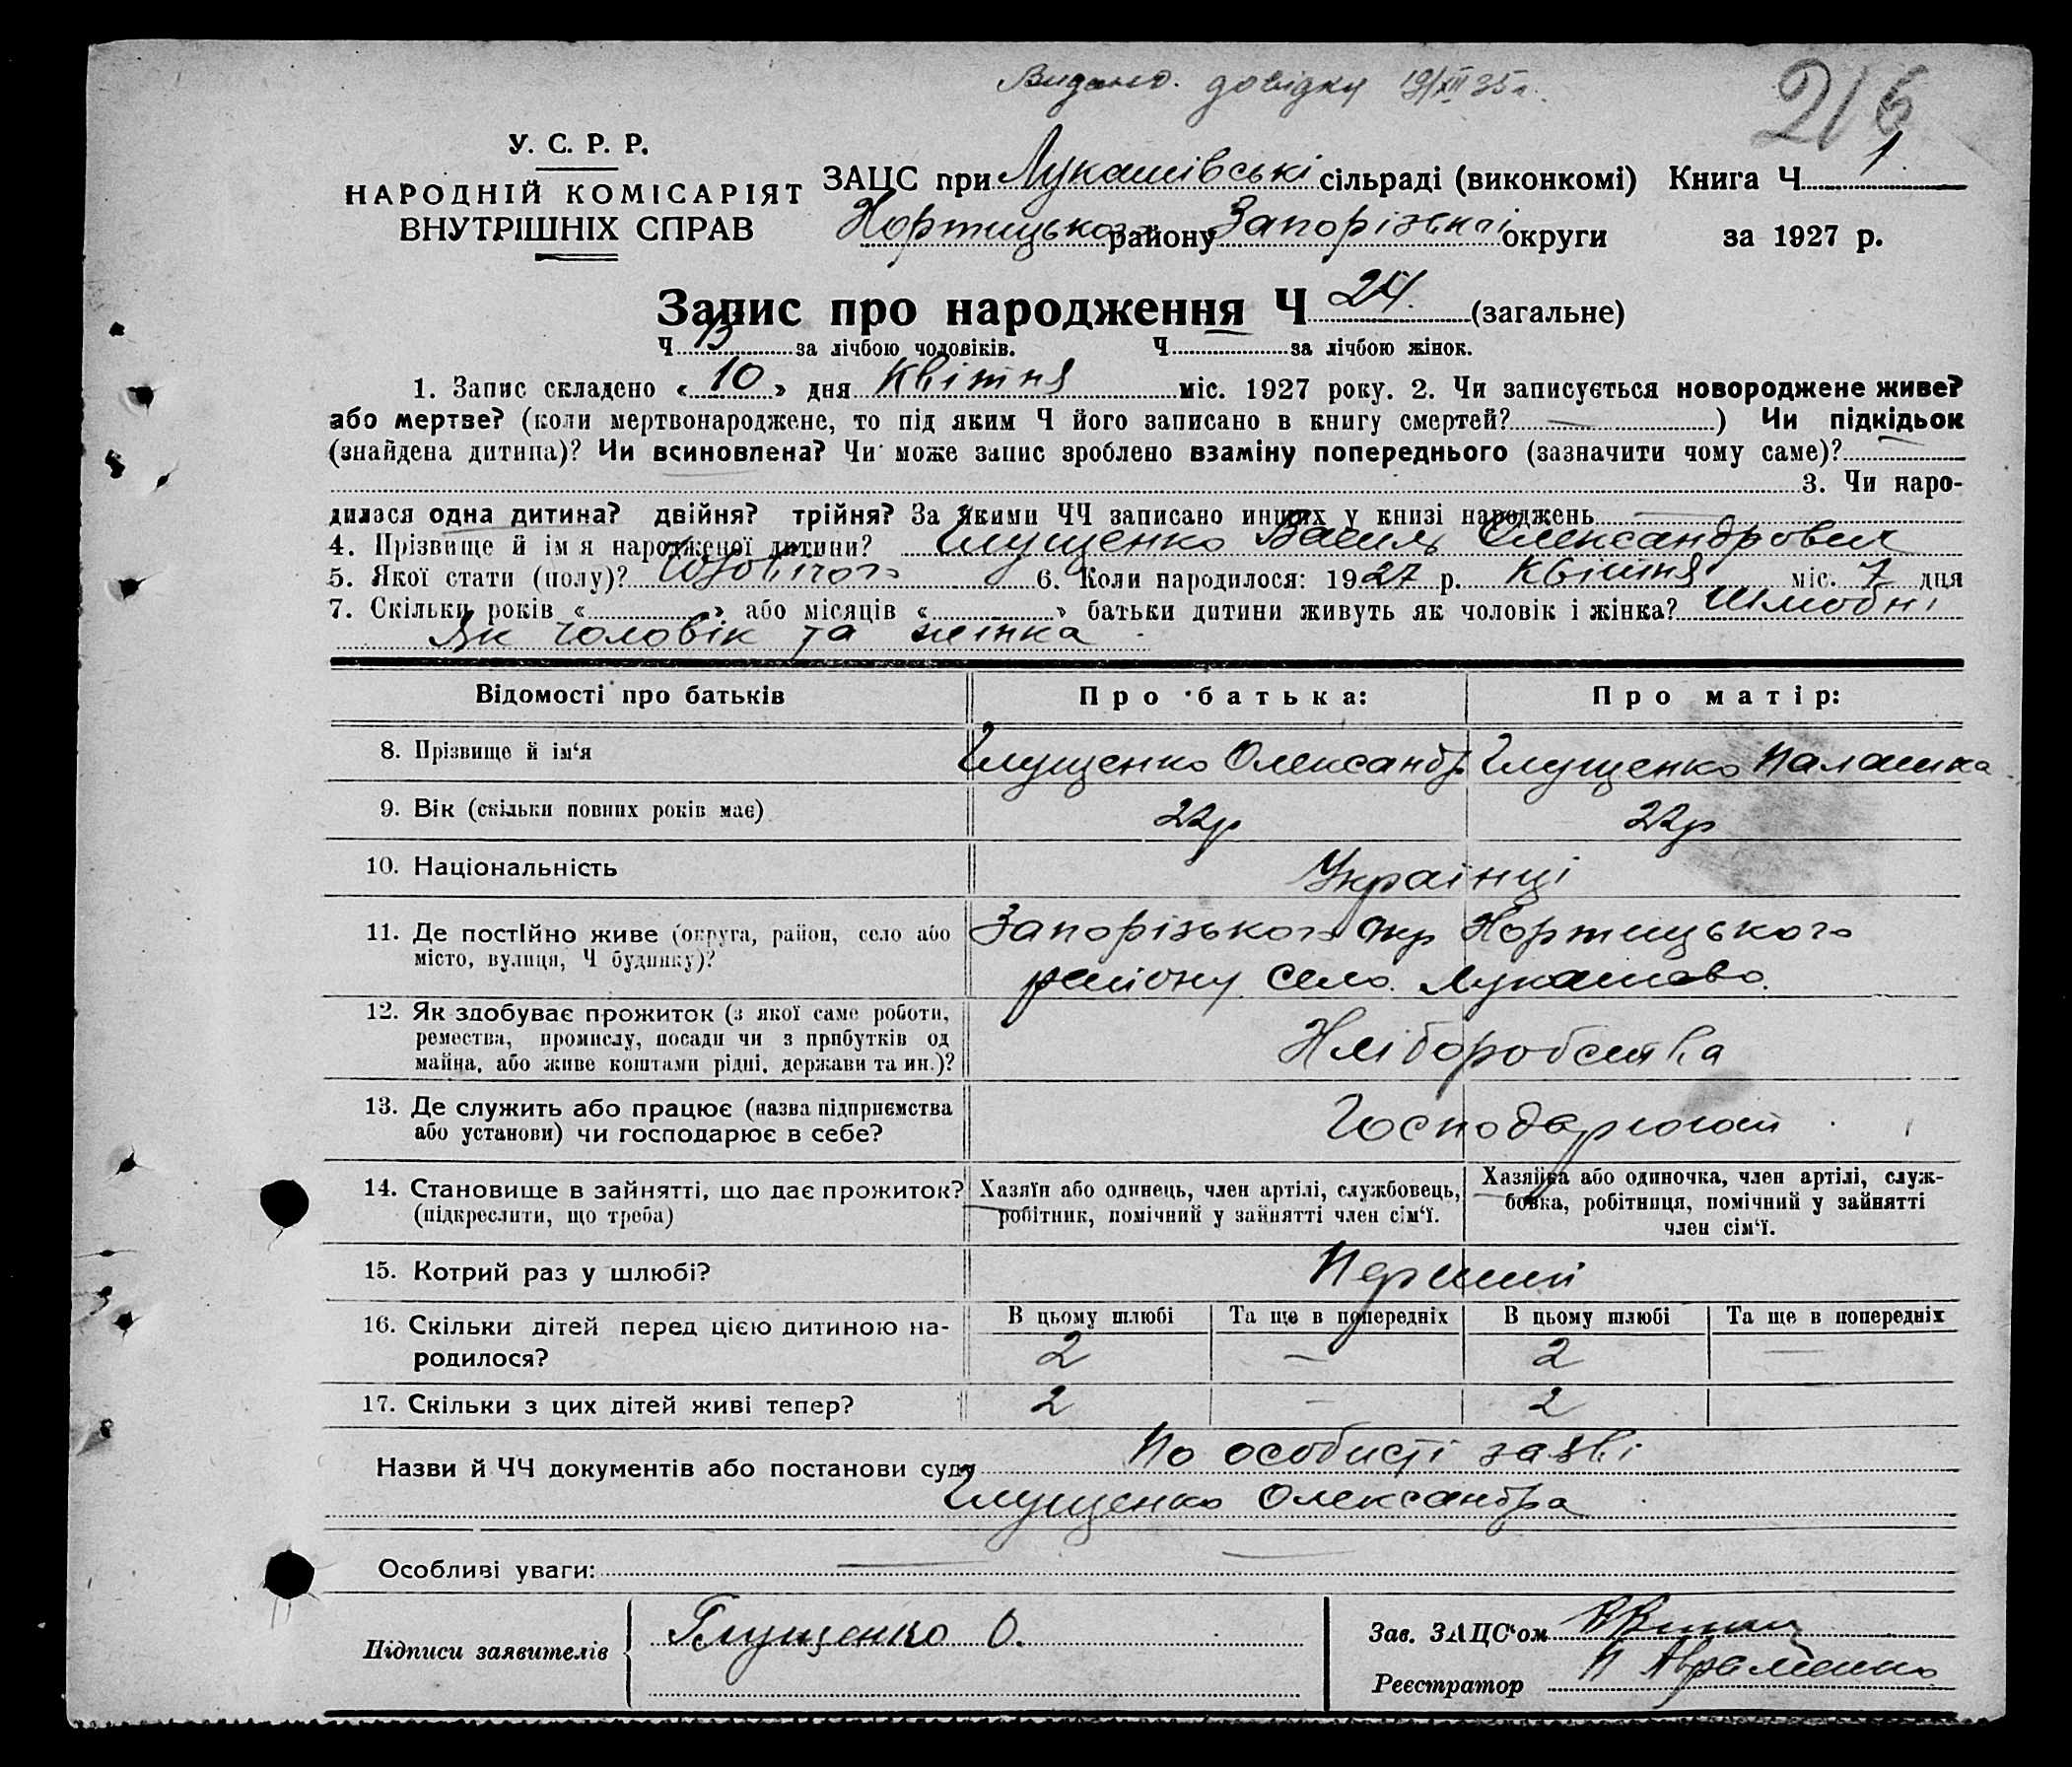 Видано. довідку 19/XII 35 р.
216
У. С. Р. Р.
НАРОДНІЙ КОМІСАРІЯТ
ВНУТРІШНІХ СПРАВ
ЗАЦС при Лукашівські сільраді (виконкомі) Книга Ч 1
Хортицького району Запорізької округи за 1927 р.
Запис про народження Ч 24. (загальне)
Ч 13 за лічбою чоловіків. Ч за лічбою жінок.
1. Запис складено « 10 » дня Квітня міс. 1927 року. 2. Чи записується новороджене живе?
або мертве? (коли мертвонароджене, то під яким Ч його записано в книгу смертей? — ) Чи підкідьок
(знайдена дитина)? Чи всиновлена? Чи може запис зроблено взаміну попереднього (зазначити чому саме)? —
3. Чи наро-
дилася одна дитина? двійня? трійня? За якими ЧЧ записано инших у книзі народжень —
4. Прізвище й ім я народженої дитини? Глущенко Василь Олександрович
5. Якої стати (полу)? Чоловічого 6. Коли народилося: 1927 р. Квітня міс. 7 дня
7. Скільки років « » або місяців « » батьки дитини живуть як чоловік і жінка? Шлюбні
Як чоловік та жінка
Відомості про батьків Про батька: Про матір:
8. Прізвище й ім‘я Глущенко Олександр Глущенко Палашка
9. Вік (скільки повних років має) 22р 22р
10. Національність Українці
11. Де постійно живе (округа, район, село або Запорізького Окр Хортицького
місто, вулиця, Ч будинку)? району село Лукашево.
12. Як здобуває прожиток (з якої саме роботи,
ремества, промислу, посади чи з прибутків од Хліборобства
майна, або живе коштами рідні, держави та ин.)?
13. Де служить або працює (назва підприємства Господарюют
або установи) чи господарює в себе?
14. Становище в зайнятті, що дає прожиток? Хазяїн або одинець, член артілі, службовець, Хазяйка або одиночка, член артілі, служ-
(підкреслити, що треба) робітник, помічний у зайнятті член сім‘ї. бовка, робітниця, помічний у зайнятті
член сім‘ї.
15. Котрий раз у шлюбі? Перший
16. Скільки дітей перед цією дитиною на- В цьому шлюбі Та ще в попередніх В цьому шлюбі Та ще в попередніх
родилося? 2 — 2 —
17. Скільки з цих дітей живі тепер? 2 — 2
Назви й ЧЧ документів або постанови суду По особисті заяві
Глущенко Олександра
Особливі уваги: — —
Підписи заявителів Глущенко О. Зав. ЗАЦС‘ом
Реєстратор П Авраменко